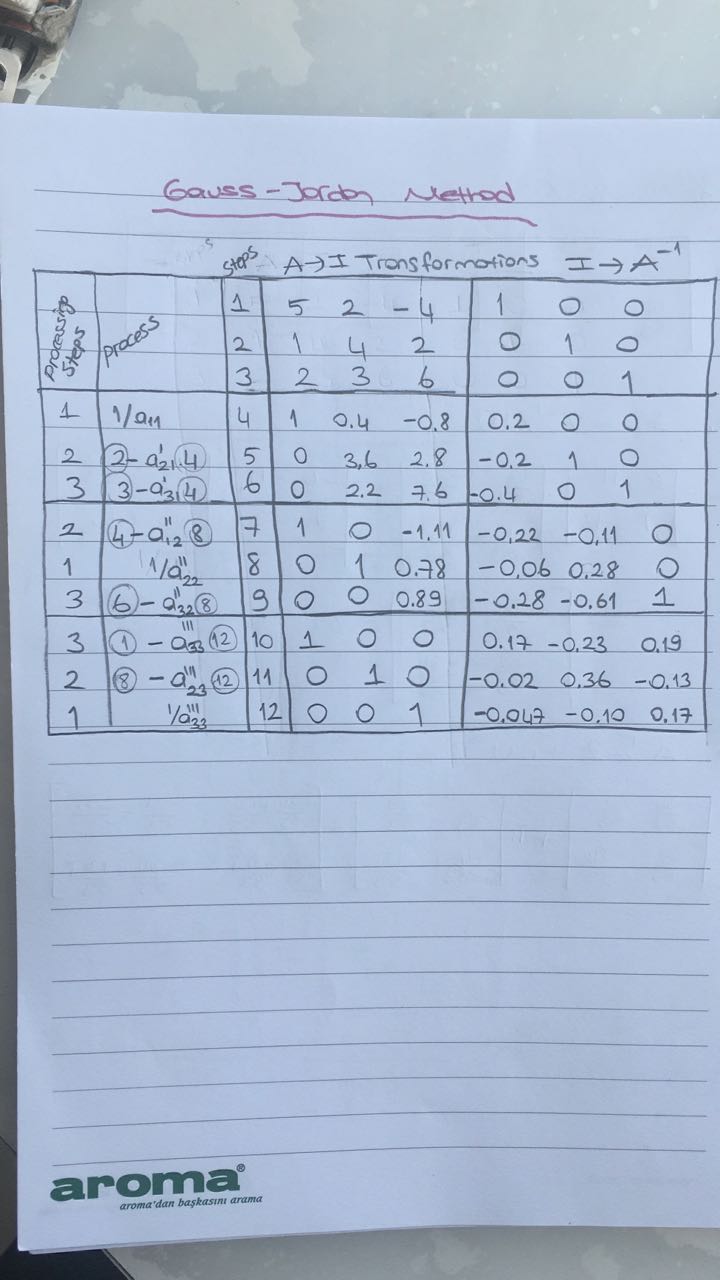 Gauss-Jordan Method
Steps A→I Transformations I→A⁻¹
Processing Steps process 1 5 2 -4 1 0 0
2 1 4 2 0 1 0
3 2 3 6 0 0 1
1 1/a₁₁ 4 1 0.4 -0.8 0.2 0 0
2 ②-a'₂₁.④ 5 0 3,6 2.8 -0.2 1 0
3 ③-a'₃₁④ 6 0 2.2 7.6 -0.4 0 1
2 ④-a''₁₂⑧ 7 1 0 -1.11 -0,22 -0,11 0
1 1/a''₂₂ 8 0 1 0.78 -0,06 0.28 0
3 ⑥-a''₃₂⑧ 9 0 0 0.89 -0.28 -0.61 1
3 ①-a'''₃₃⑫ 10 1 0 0 0.17 -0.23 0.19
2 ⑧-a'''₂₃⑫ 11 0 1 0 -0.02 0.36 -0.13
1 1/a'''₃₃ 12 0 0 1 -0.047 -0.10 0.17
aroma®
aroma'dan başkasını arama